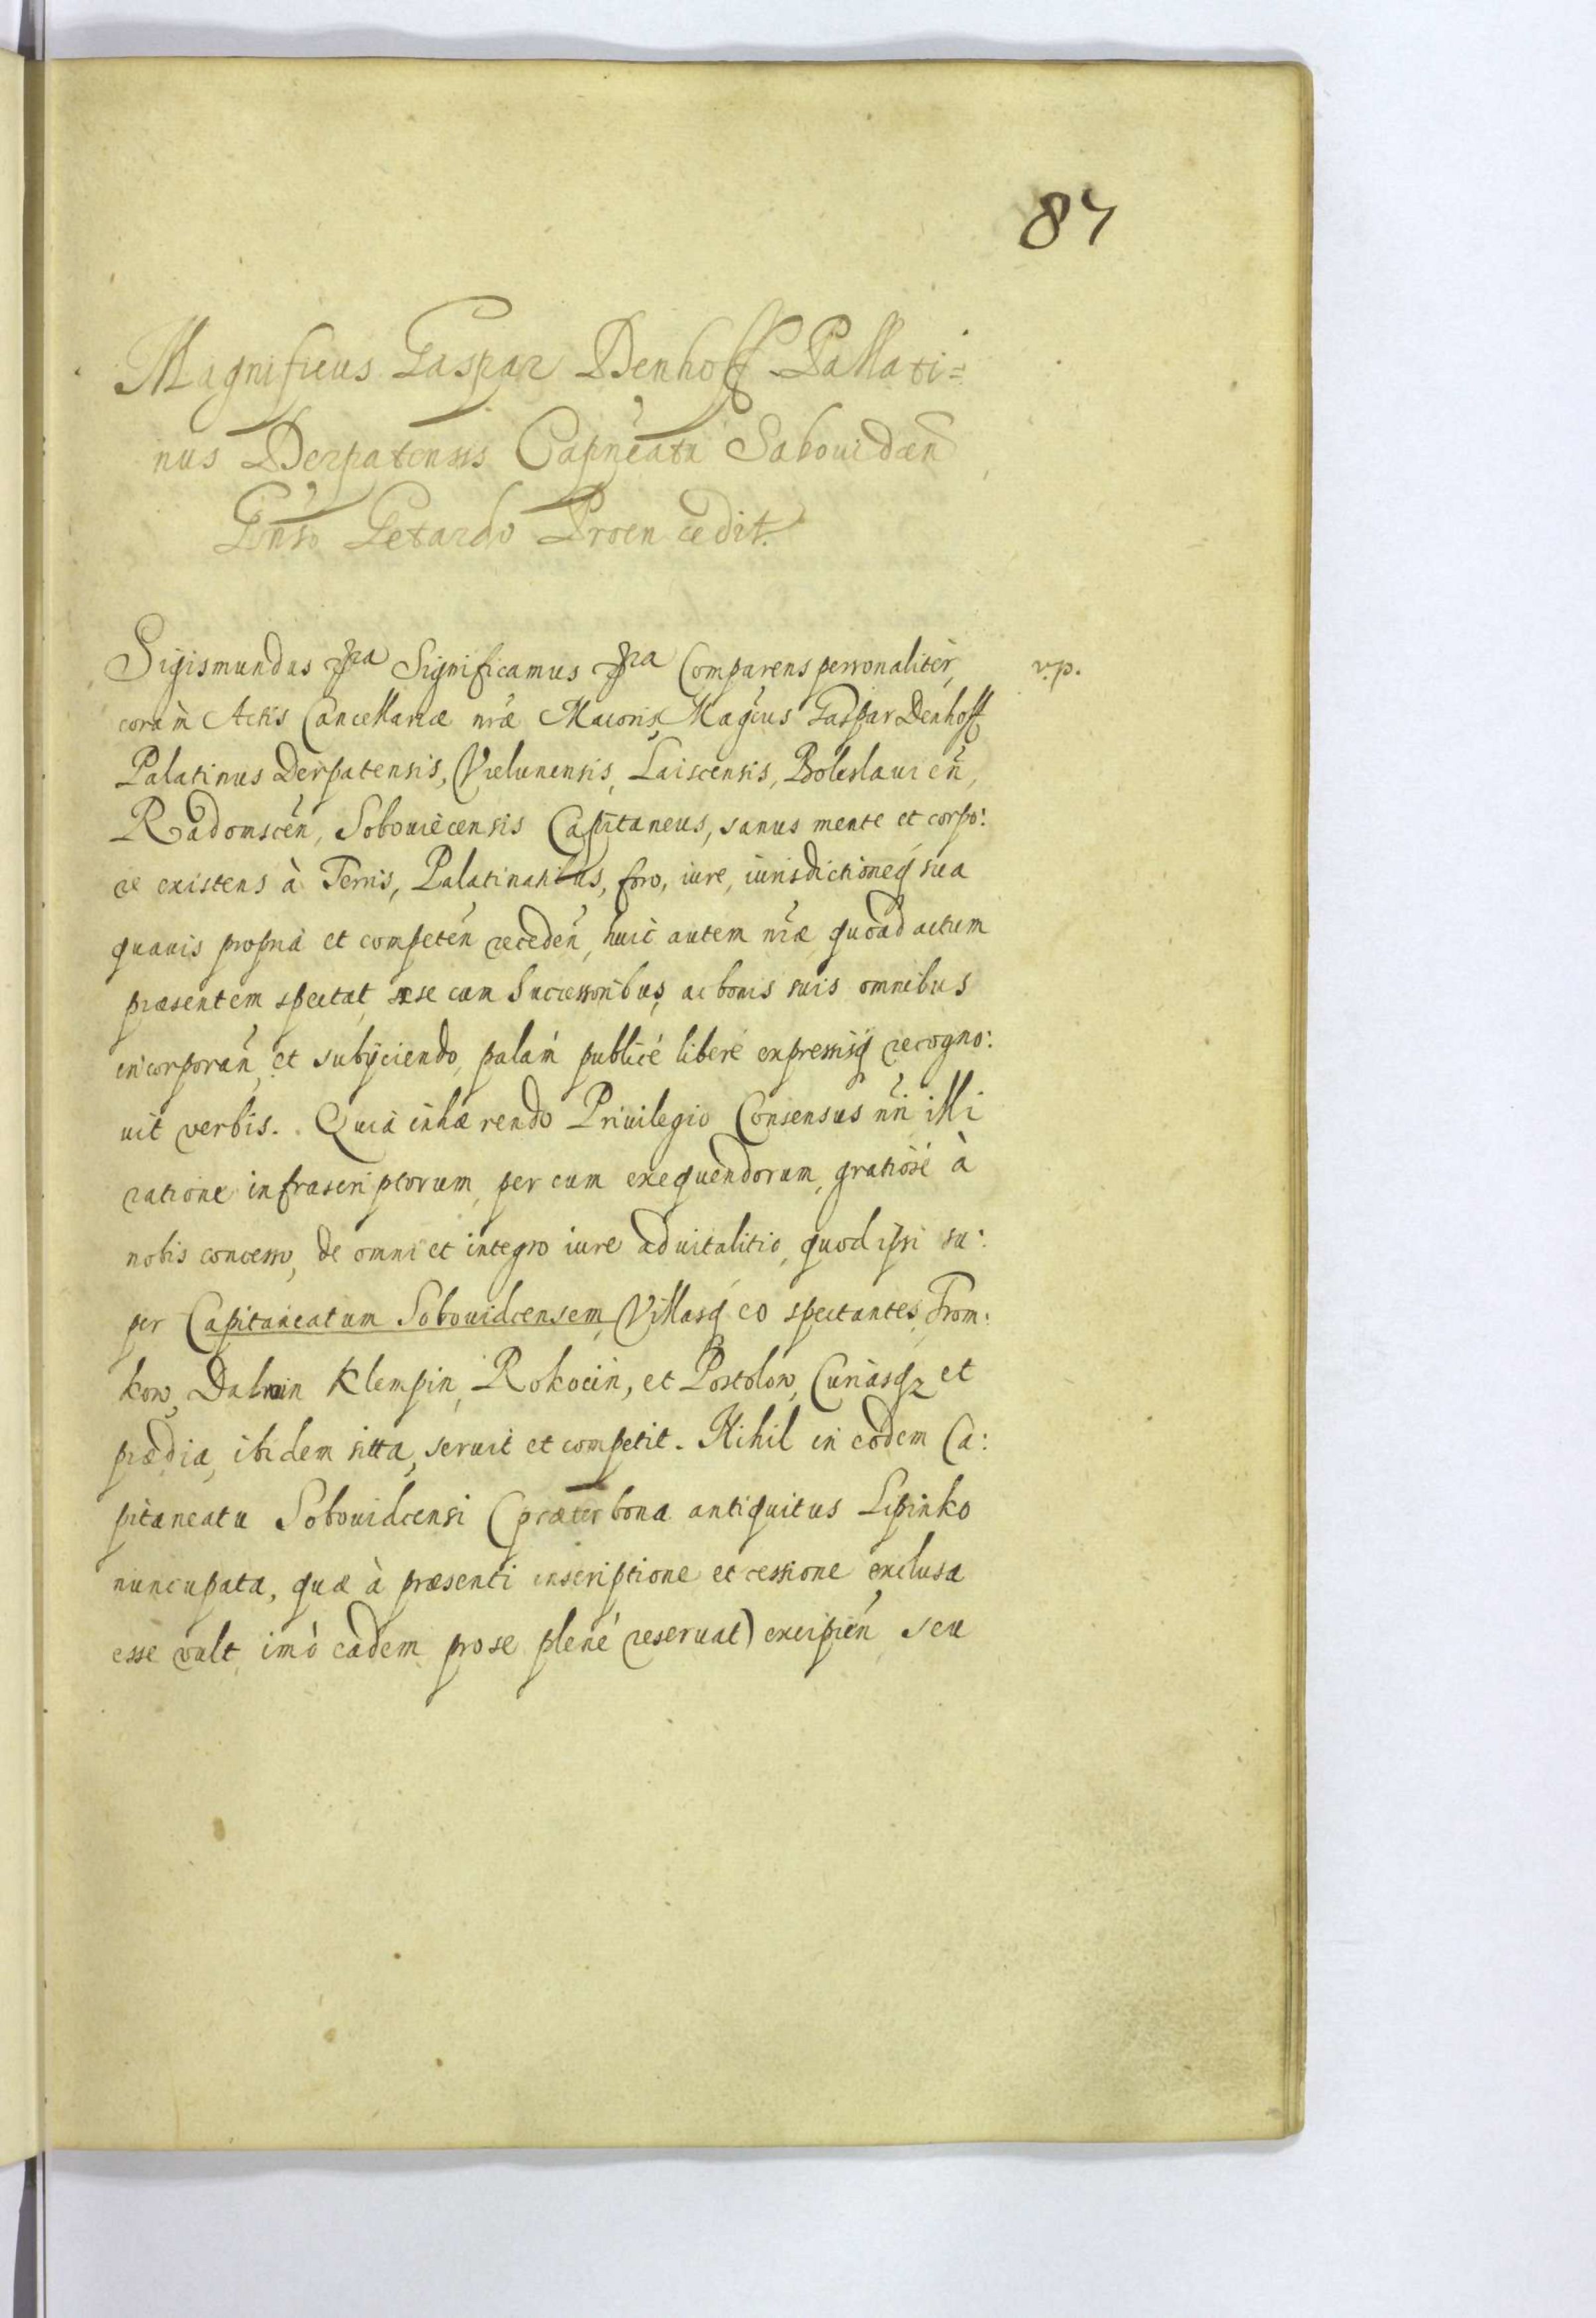 87
Magnificus Gaspar Denhoff Pallati=
nus Derpatensis Capneatu Sabouidcen
Gnso Getardo Proen cedit.
Sigismundus &ra Significamus &ra Comparens personalitèr, v.p.
coràm Actis Cancellariæ nræ Maioris, Magcus Gaspar Denhoff
Palatinus Derpatensis, Vielunensis, Laiscensis, Boleslauien,
Radomscen, Sobouiecensis Capitaneus, sanus mente et corpo:
re existens à Terris, Palatinatibus, foro, iure, iurisdictioneq sua
quauis propria et competen receden, huic autem nræ, quoad actum
præsentem spectat, sese cum Successoribus, ac bonis suis omnibus
incorporan, et subijciendo, palám publicé liberé expressisq recogno:
uit verbis. Quià inhærendo Priuilegio Consensus nri illi
ratione infrascriptorum, per eum exequendorum, gratiosé à
nobis concesso, de omni et integro iure aduitalitio, quod ipsi su:
per Capitaneatum Sobouidcensem, Villasq eo spectantes, Trom:
kow, Dalwin Klempin, Rokocin, et Postolow, Curiasqz et
prædia, ibidem sitta, seruit et competit. Nihil in eodem Ca:
pitaneatu Sobouidcensi (præter bona antiquitus Lipinko
nuncupata, quæ à præsenti inscriptione et cessione exclusa
esse vult, imò eadem pro se plené reseruat) excipien seu